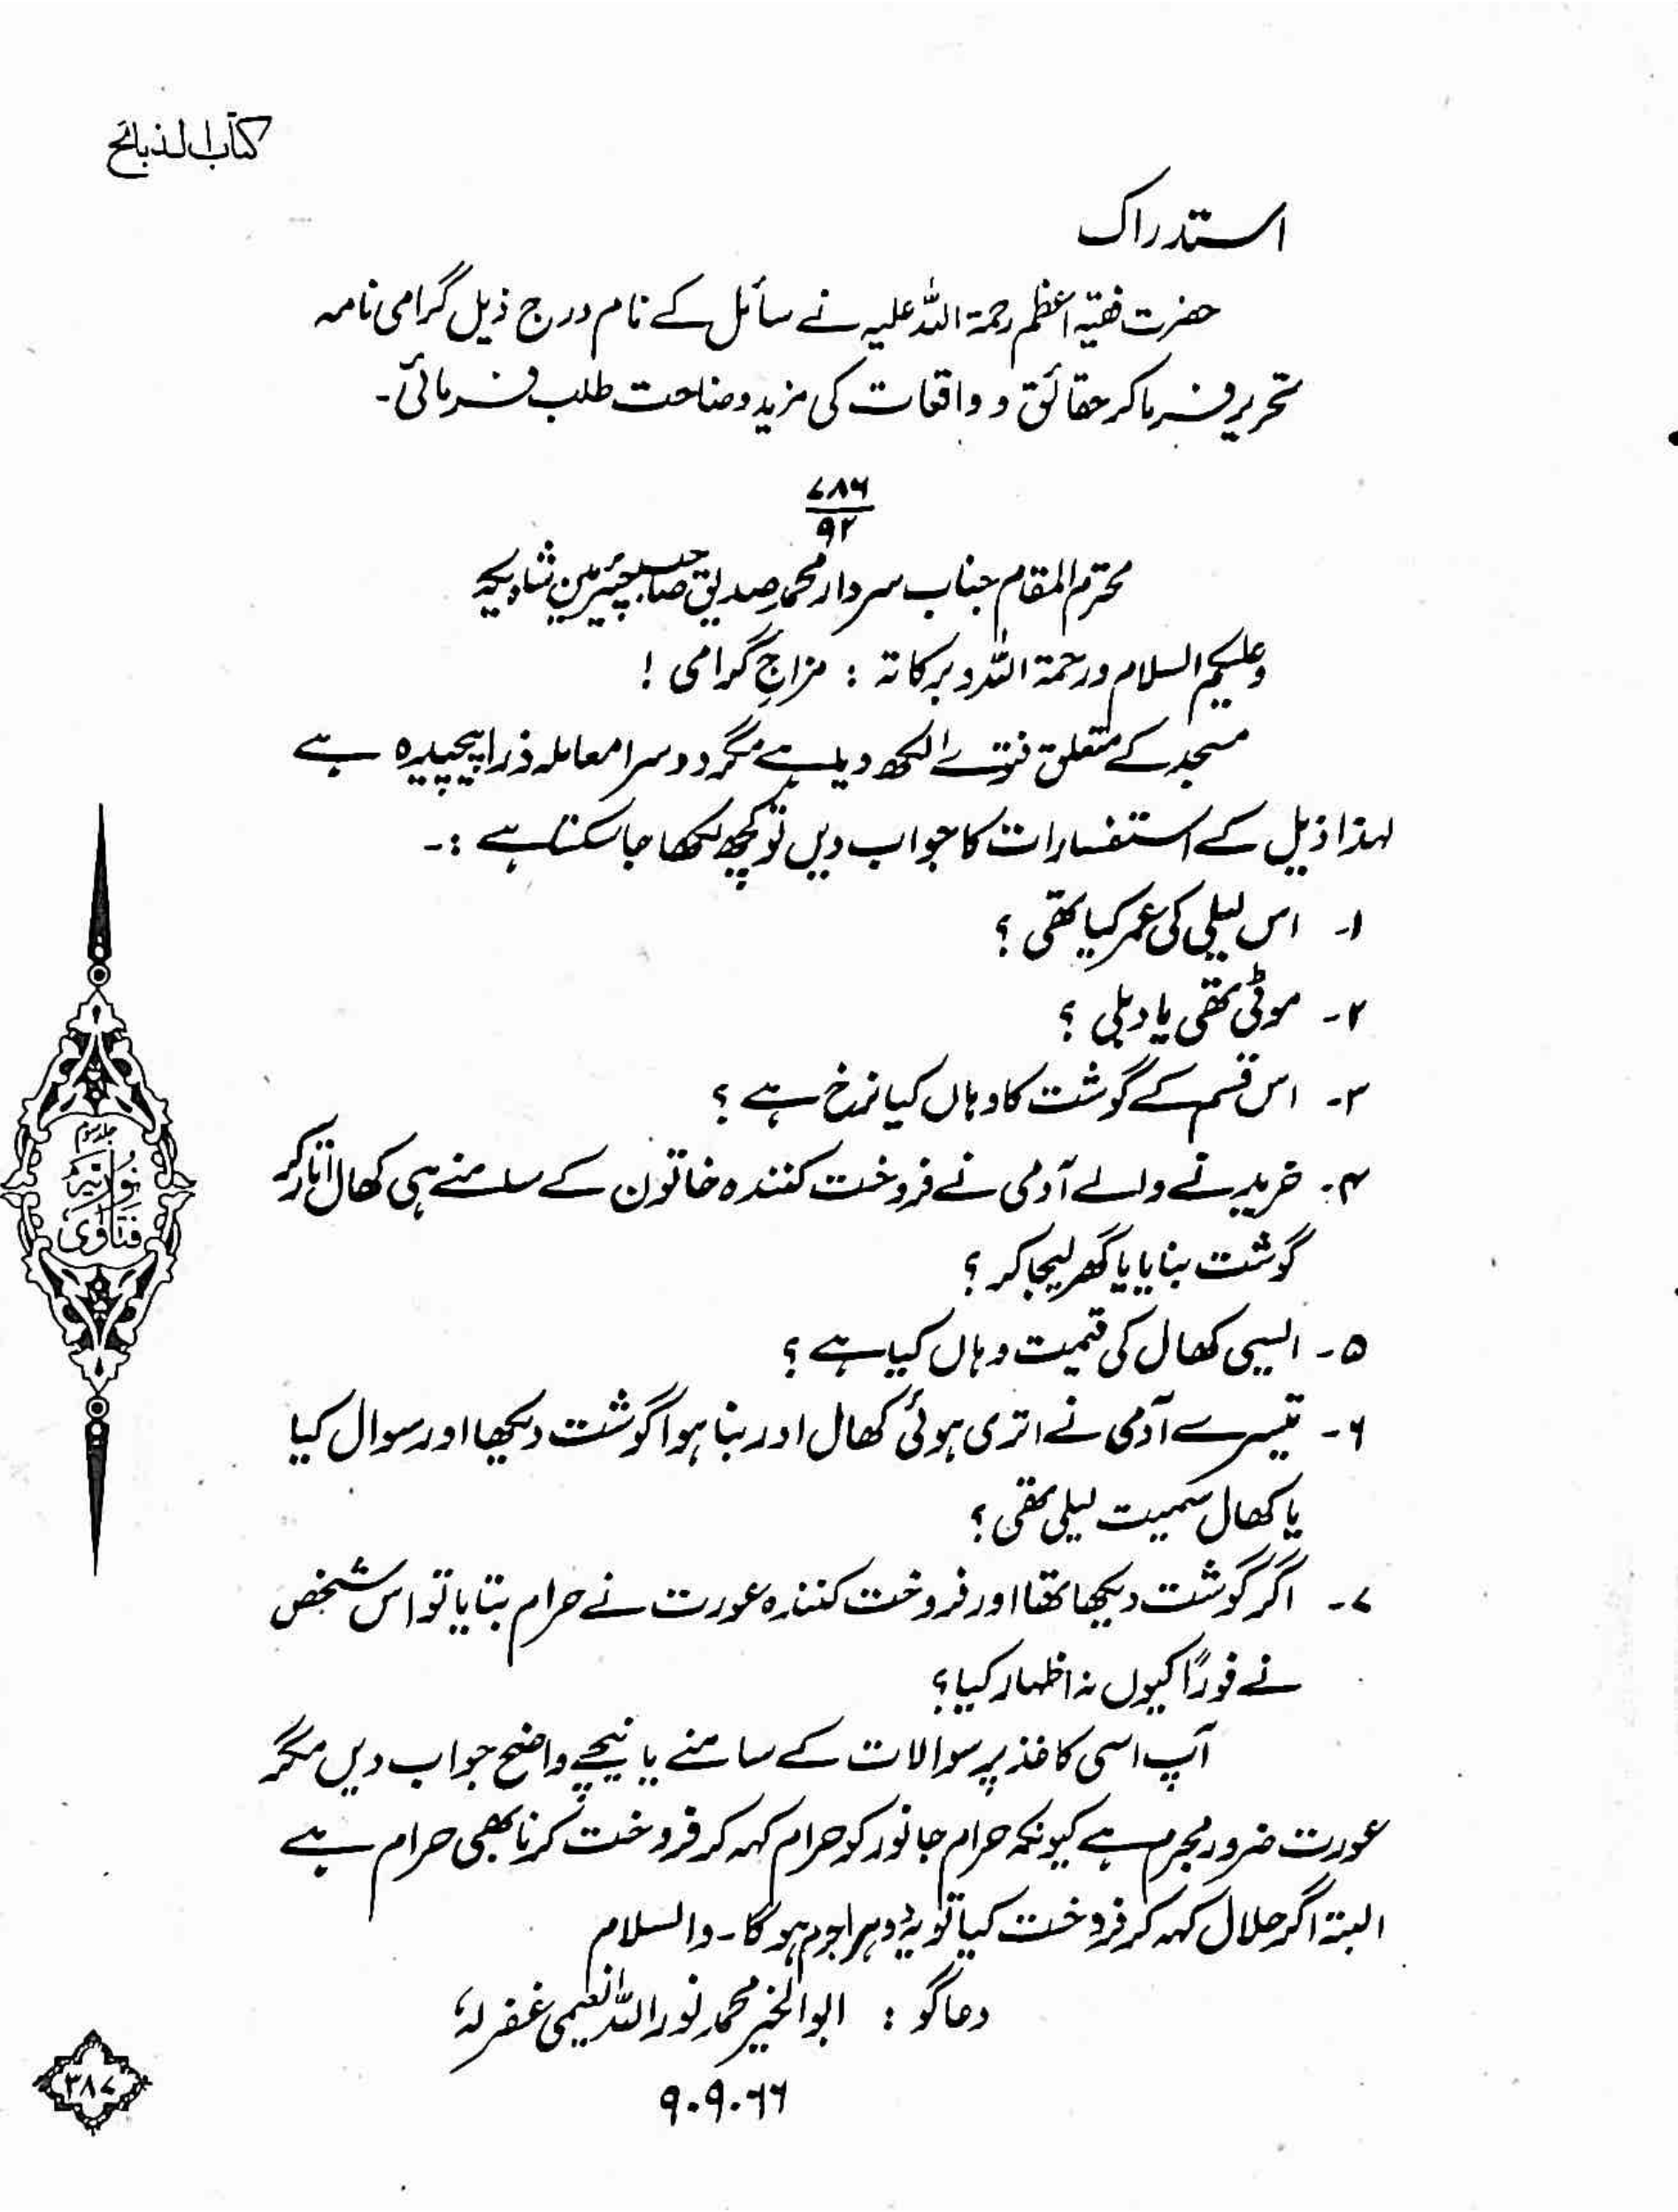 کتاب الذبائح
استدراک
حضرت فقیہ اعظم رحمۃ اللہ علیہ نے سائل کے نام درج ذیل گرامی نامہ
تحریر فرما کر حقائق و واقعات کی مزید وضاحت طلب فرمائی۔
۷۸۶
۹۲
محترم المقام جناب سردار محمد صدیق صاحب چیئرمین
وعلیکم السلام ورحمۃ اللہ وبرکاتہ : مزاجِ گرامی !
مسجد کے متعلق فتوےٰ لکھ دیا ہے مگر دوسرا معاملہ ذرا پیچیدہ ہے
لہذا ذیل کے استفسارات کا جواب دیں تو کچھ لکھا جا سکتا ہے :۔
۱۔ اس لیلی کی عمر کیا تھی ؟
۲۔ موٹی تھی یا دبلی ؟
۳۔ اس قسم کے گوشت کا وہاں کیا نرخ ہے ؟
۴۔ خریدنے والے آدمی نے فروخت کنندہ خاتون کے سامنے ہی کھال اتار کر
گوشت بنایا یا گھر لیجا کر ؟
۵۔ ایسی کھال کی قیمت وہاں کیا ہے ؟
۶۔ تیسرے آدمی نے اتری ہوئی کھال اور بنا ہوا گوشت دیکھا اور سوال کیا
یا کھال سمیت لیلی تھی ؟
۷۔ اگر گوشت دیکھا تھا اور فروخت کنندہ عورت نے حرام بتایا تو اس شخص
نے فوراً کیوں نہ اظہار کیا؟
آپ اسی کاغذ پر سوالات کے سامنے یا نیچے واضح جواب دیں مگر
عورت ضرور مجرم ہے کیونکہ حرام جانور کو حرام کہہ کر فروخت کرنا بھی حرام ہے
البتہ اگر حلال کہہ کر فروخت کیا تو یہ دوہرا جرم ہو گا۔ والسلام
دعاگو : ابوالخیر محمد نور اللہ النعیمی غفرلہٗ
۹۔۹۔۶۶
جلد سوم
فتاویٰ نوریہ
۳۸۷